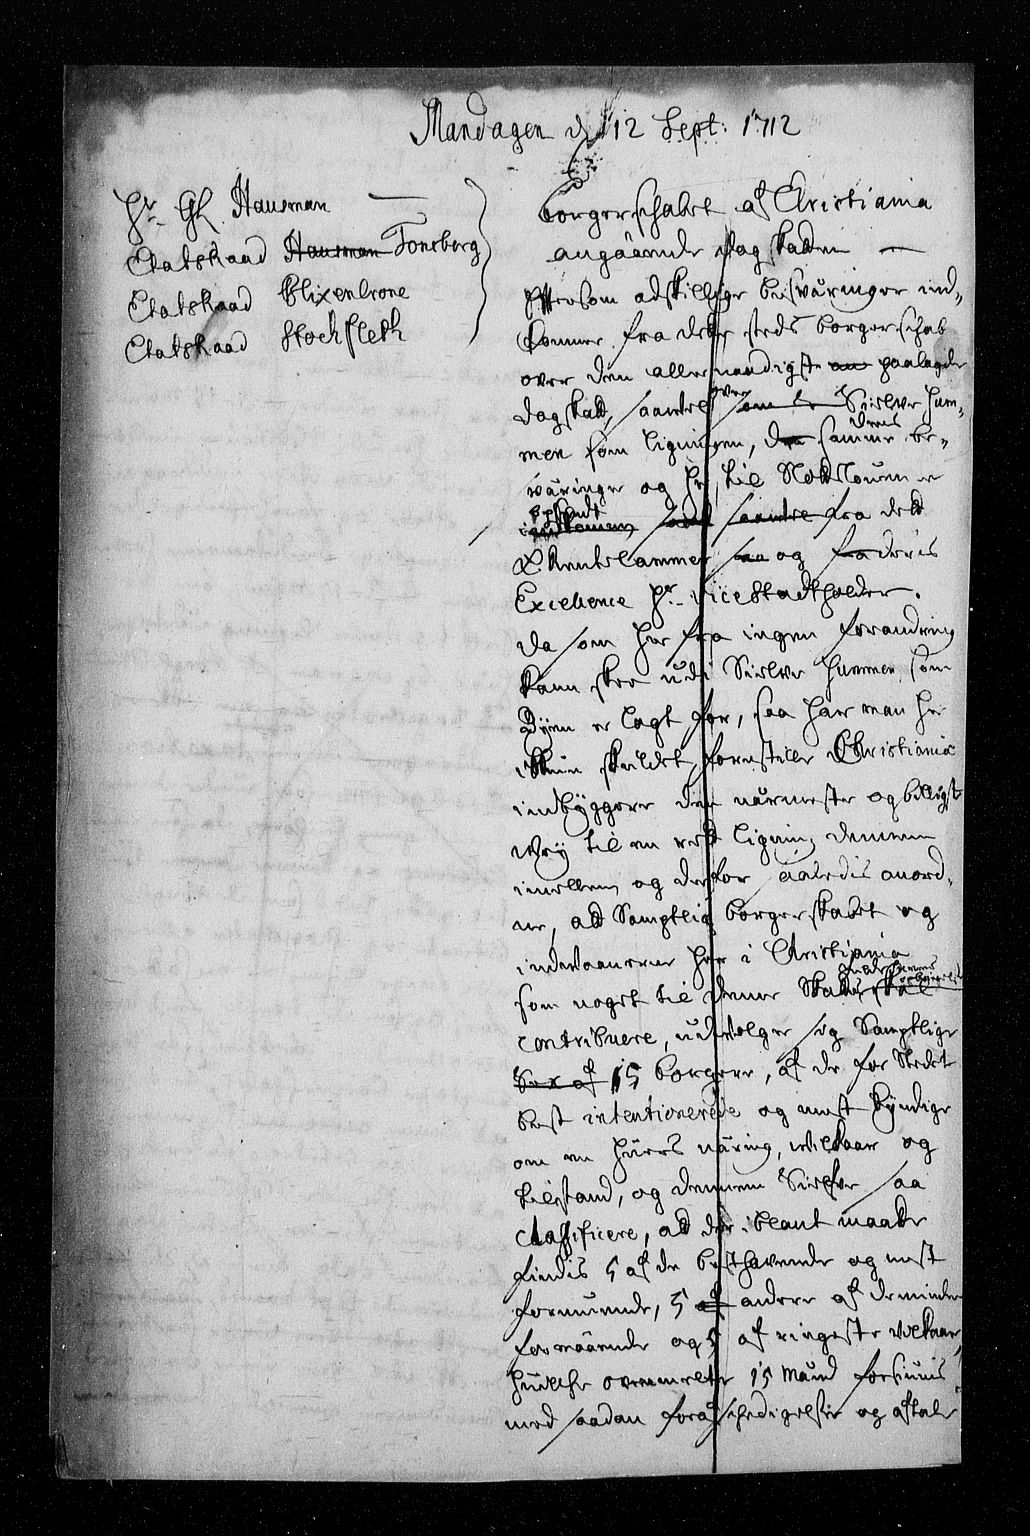 Mandagen d 12 Sept: 1712
Hr. GL Hausman
Etatsraad Hausman Tonsberg
Etatsraad Blixencrone
Etatsraad Stockfleth
Borgerschabet af Christiania
angaaende dagskatten
Efftersom adskillige besværinger ind-
kommer fra dette steds borgerschab
over den allernaadigste paalagde
dagskatt, saavel over som Sielve Sum-
men som ligningen, samme deris be-
sværinger og hr til Slotsloven er
opsendt
indkomen, saavel fra dett
R. Rentekammer og deris
Excellence Hr. Vice Stadtholder.
da som her fra ingen forandring
kand skee udi Sielve Summen som
Byen er lagt for, saa har man her
ikkun skullet forestille Christianiæ
indbyggere den nærmeste og billigste
vey til en rett ligning dennem
imellem og derfor saaledis anord-
ne, att Samptlig borgerskabet og
indvaanere her i Christiania
som noget til denne Skatt skal
contribuere, udvælger sig Samptlige
Sex af 15 borgere, af de for Stedet
best intentionerede og mest kyndige
om en hvers næring, vilkaar og
tilstand, og dennem Sielfve saa
classificere, att der iblant maatte
findis 5 af de best havende og mest
formuende, 5 af andere af de mindre
formuende og 5 af ringeste vilkaar,
hvilche ovenmelte 15 Mænd forsiunis
med saadan